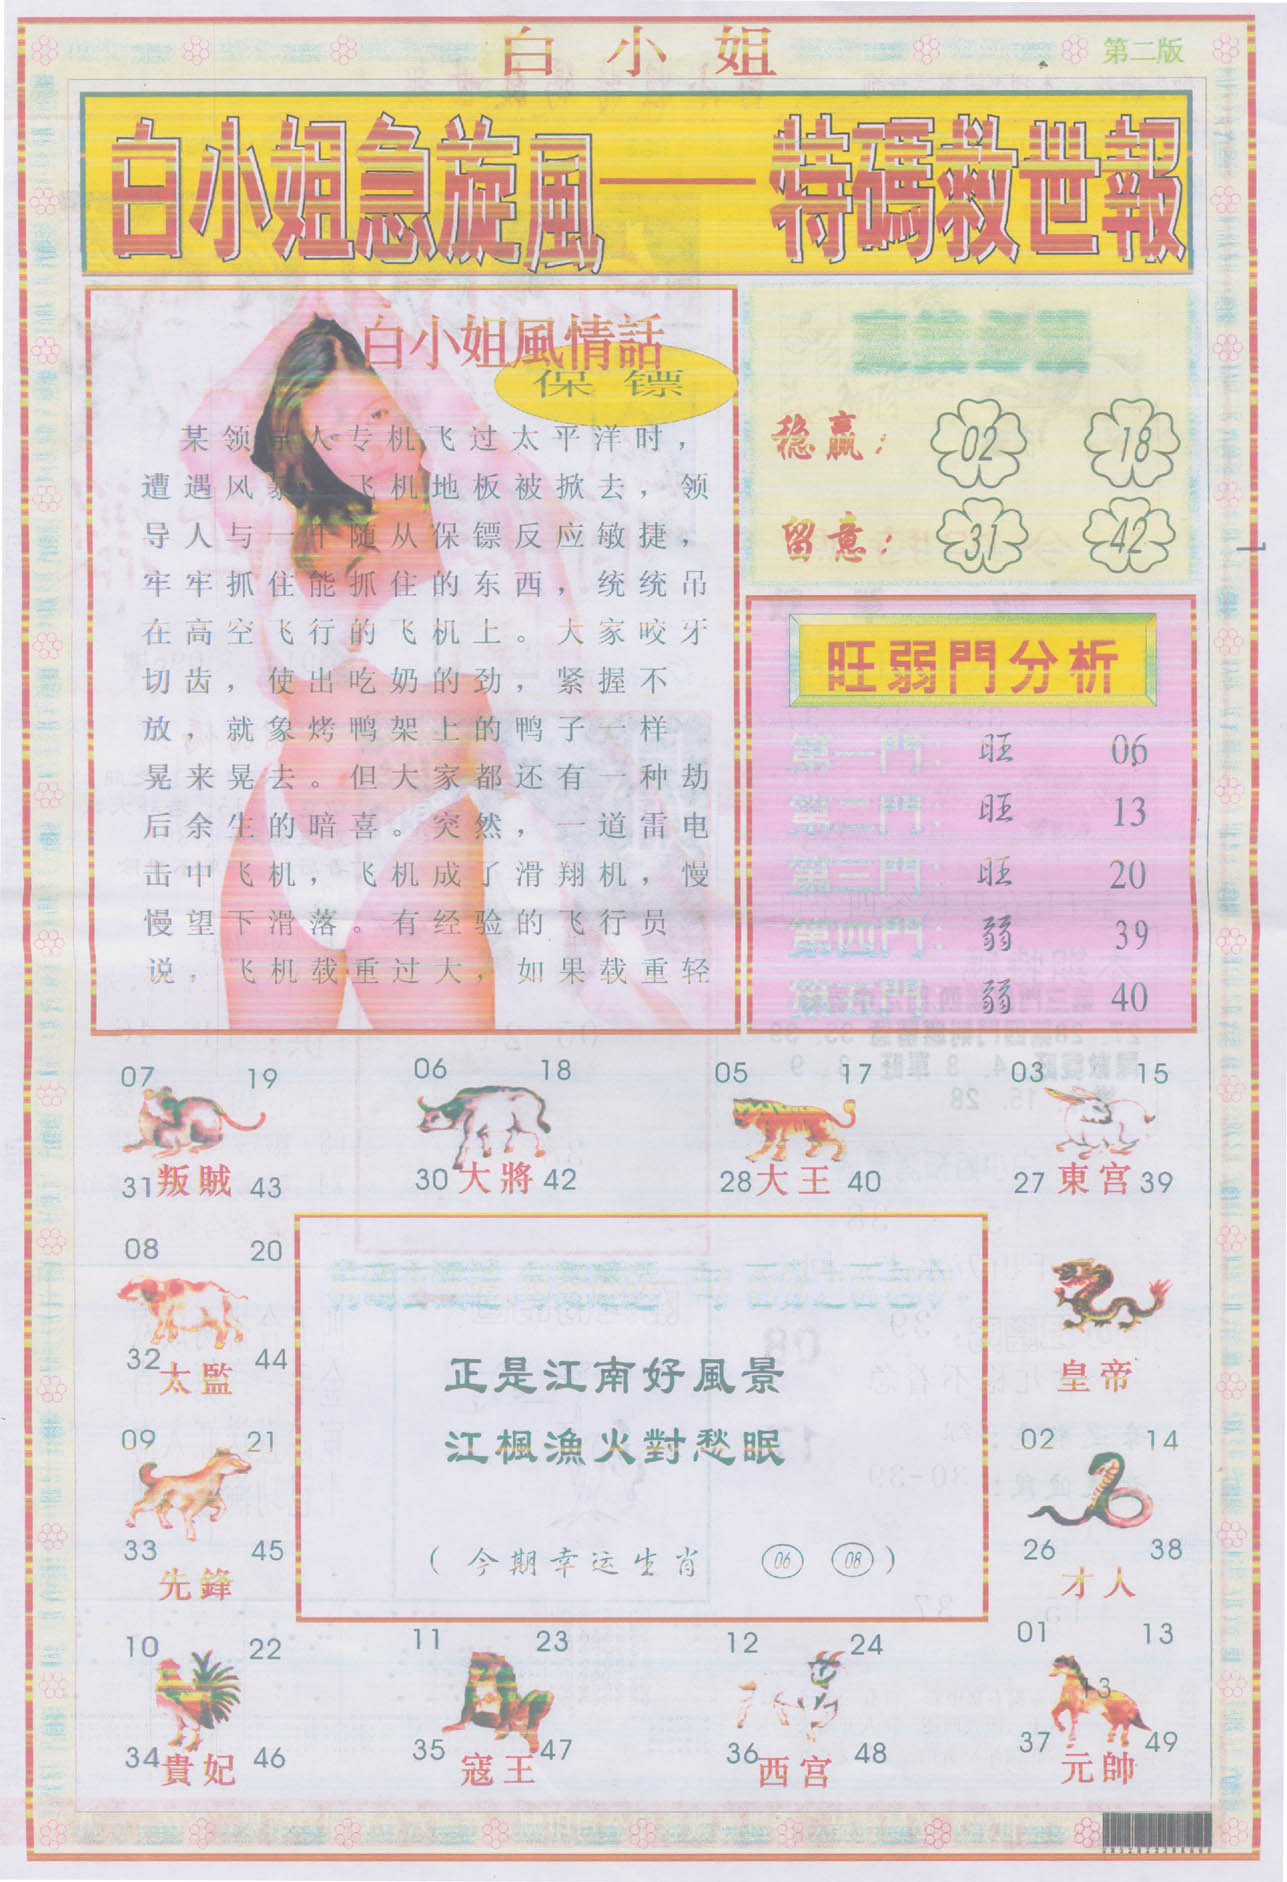 白小姐
第二版
白小姐急旋風——特碼救世報
白小姐風情話
保镖
某领导人专机飞过太平洋时，
遭遇风暴，飞机地板被掀去，领
导人与一干随从保镖反应敏捷，
牢牢抓住能抓住的东西，统统吊
在高空飞行的飞机上。大家咬牙
切齿，使出吃奶的劲，紧握不
放，就象烤鸭架上的鸭子一样
晃来晃去。但大家都还有一种劫
后余生的暗喜。突然，一道雷电
击中飞机，飞机成了滑翔机，慢
慢望下滑落。有经验的飞行员
说，飞机载重过大，如果载重轻
稳赢： 02 18
留意： 31 42
旺弱門分析
第一門： 旺 06
第二門： 旺 13
第三門： 旺 20
第四門： 弱 39
第五門： 弱 40
07 19
31 叛賊 43
06 18
30 大將 42
05 17
28 大王 40
03 15
27 東宫 39
08 20
32 太監 44
皇帝
09 21
33 45
先鋒
正是江南好風景
江楓漁火對愁眠
（今期幸运生肖 06 08）
02 14
26 38
才人
10 22
34 貴妃 46
11 23
35 寇王 47
12 24
36 西宫 48
01 13
13
37 元帥 49